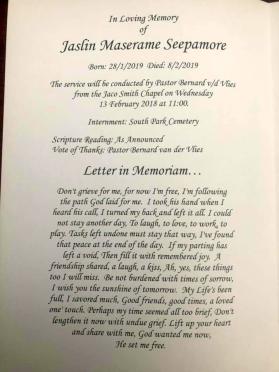 In Loving Memory
of
Jaslin Maserame Seepamore
Born: 28/1/2019 Died: 8/2/2019
The service will be conducted by Pastor Bernard v/d Vlies
from the Jaco Smith Chapel on Wednesday
13 February 2018 at 11:00.
Internment: South Park Cemetery
Scripture Reading: As Announced
Vote of Thanks: Pastor Bernard van der Vlies
Letter in Memoriam…
Don't grieve for me, for now I'm free, I'm following
the path God laid for me. I took his hand when I
heard his call, I turned my back and left it all. I could
not stay another day. To laugh, to love, to work, to
play. Tasks left undone must stay that way, I've found
that peace at the end of the day. If my parting has
left a void, Then fill it with remembered joy. A
friendship shared, a laugh, a kiss, Ah, yes, these things
too I will miss. Be not burdened with times of sorrow,
I wish you the sunshine of tomorrow. My Life's been
full, I savored much, Good friends, good times, a loved
one' touch. Perhaps my time seemed all too brief, Don't
lengthen it now with undue grief. Lift up your heart
and share with me, God wanted me now,
He set me free.